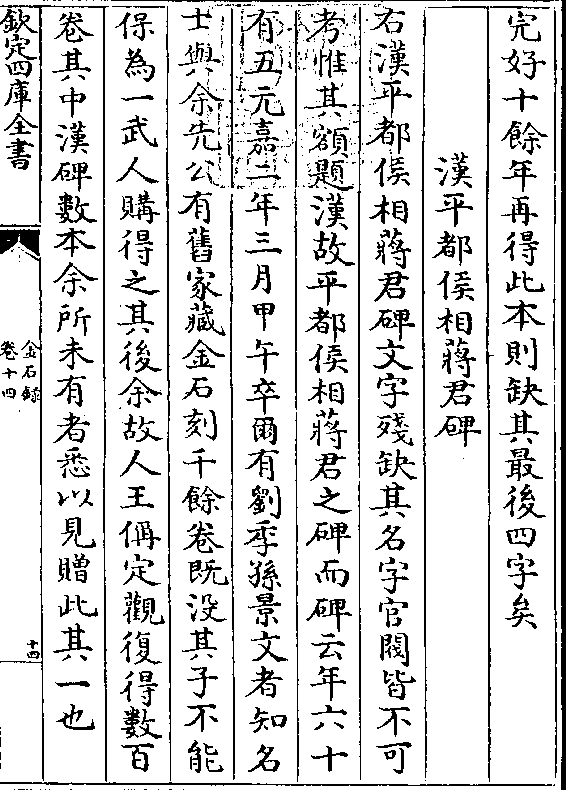 完好十餘年再得此本則缺其最後四字矣
漢平都侯相蔣君碑
右漢平都侯相蔣君碑文字殘缺其名字官閥皆不可
考惟其額題漢故平都侯相蔣君之碑而碑云年六十
有五元嘉二年三月甲午卒爾有劉季孫景文者知名
士與余先公有舊家藏金石刻千餘卷既没其子不能
保為一武人購得之其後余故人王偁定觀復得數百
卷其中漢碑數本余所未有者悉以見贈此其一也
欽定四庫全書
金石錄
卷十四
十四